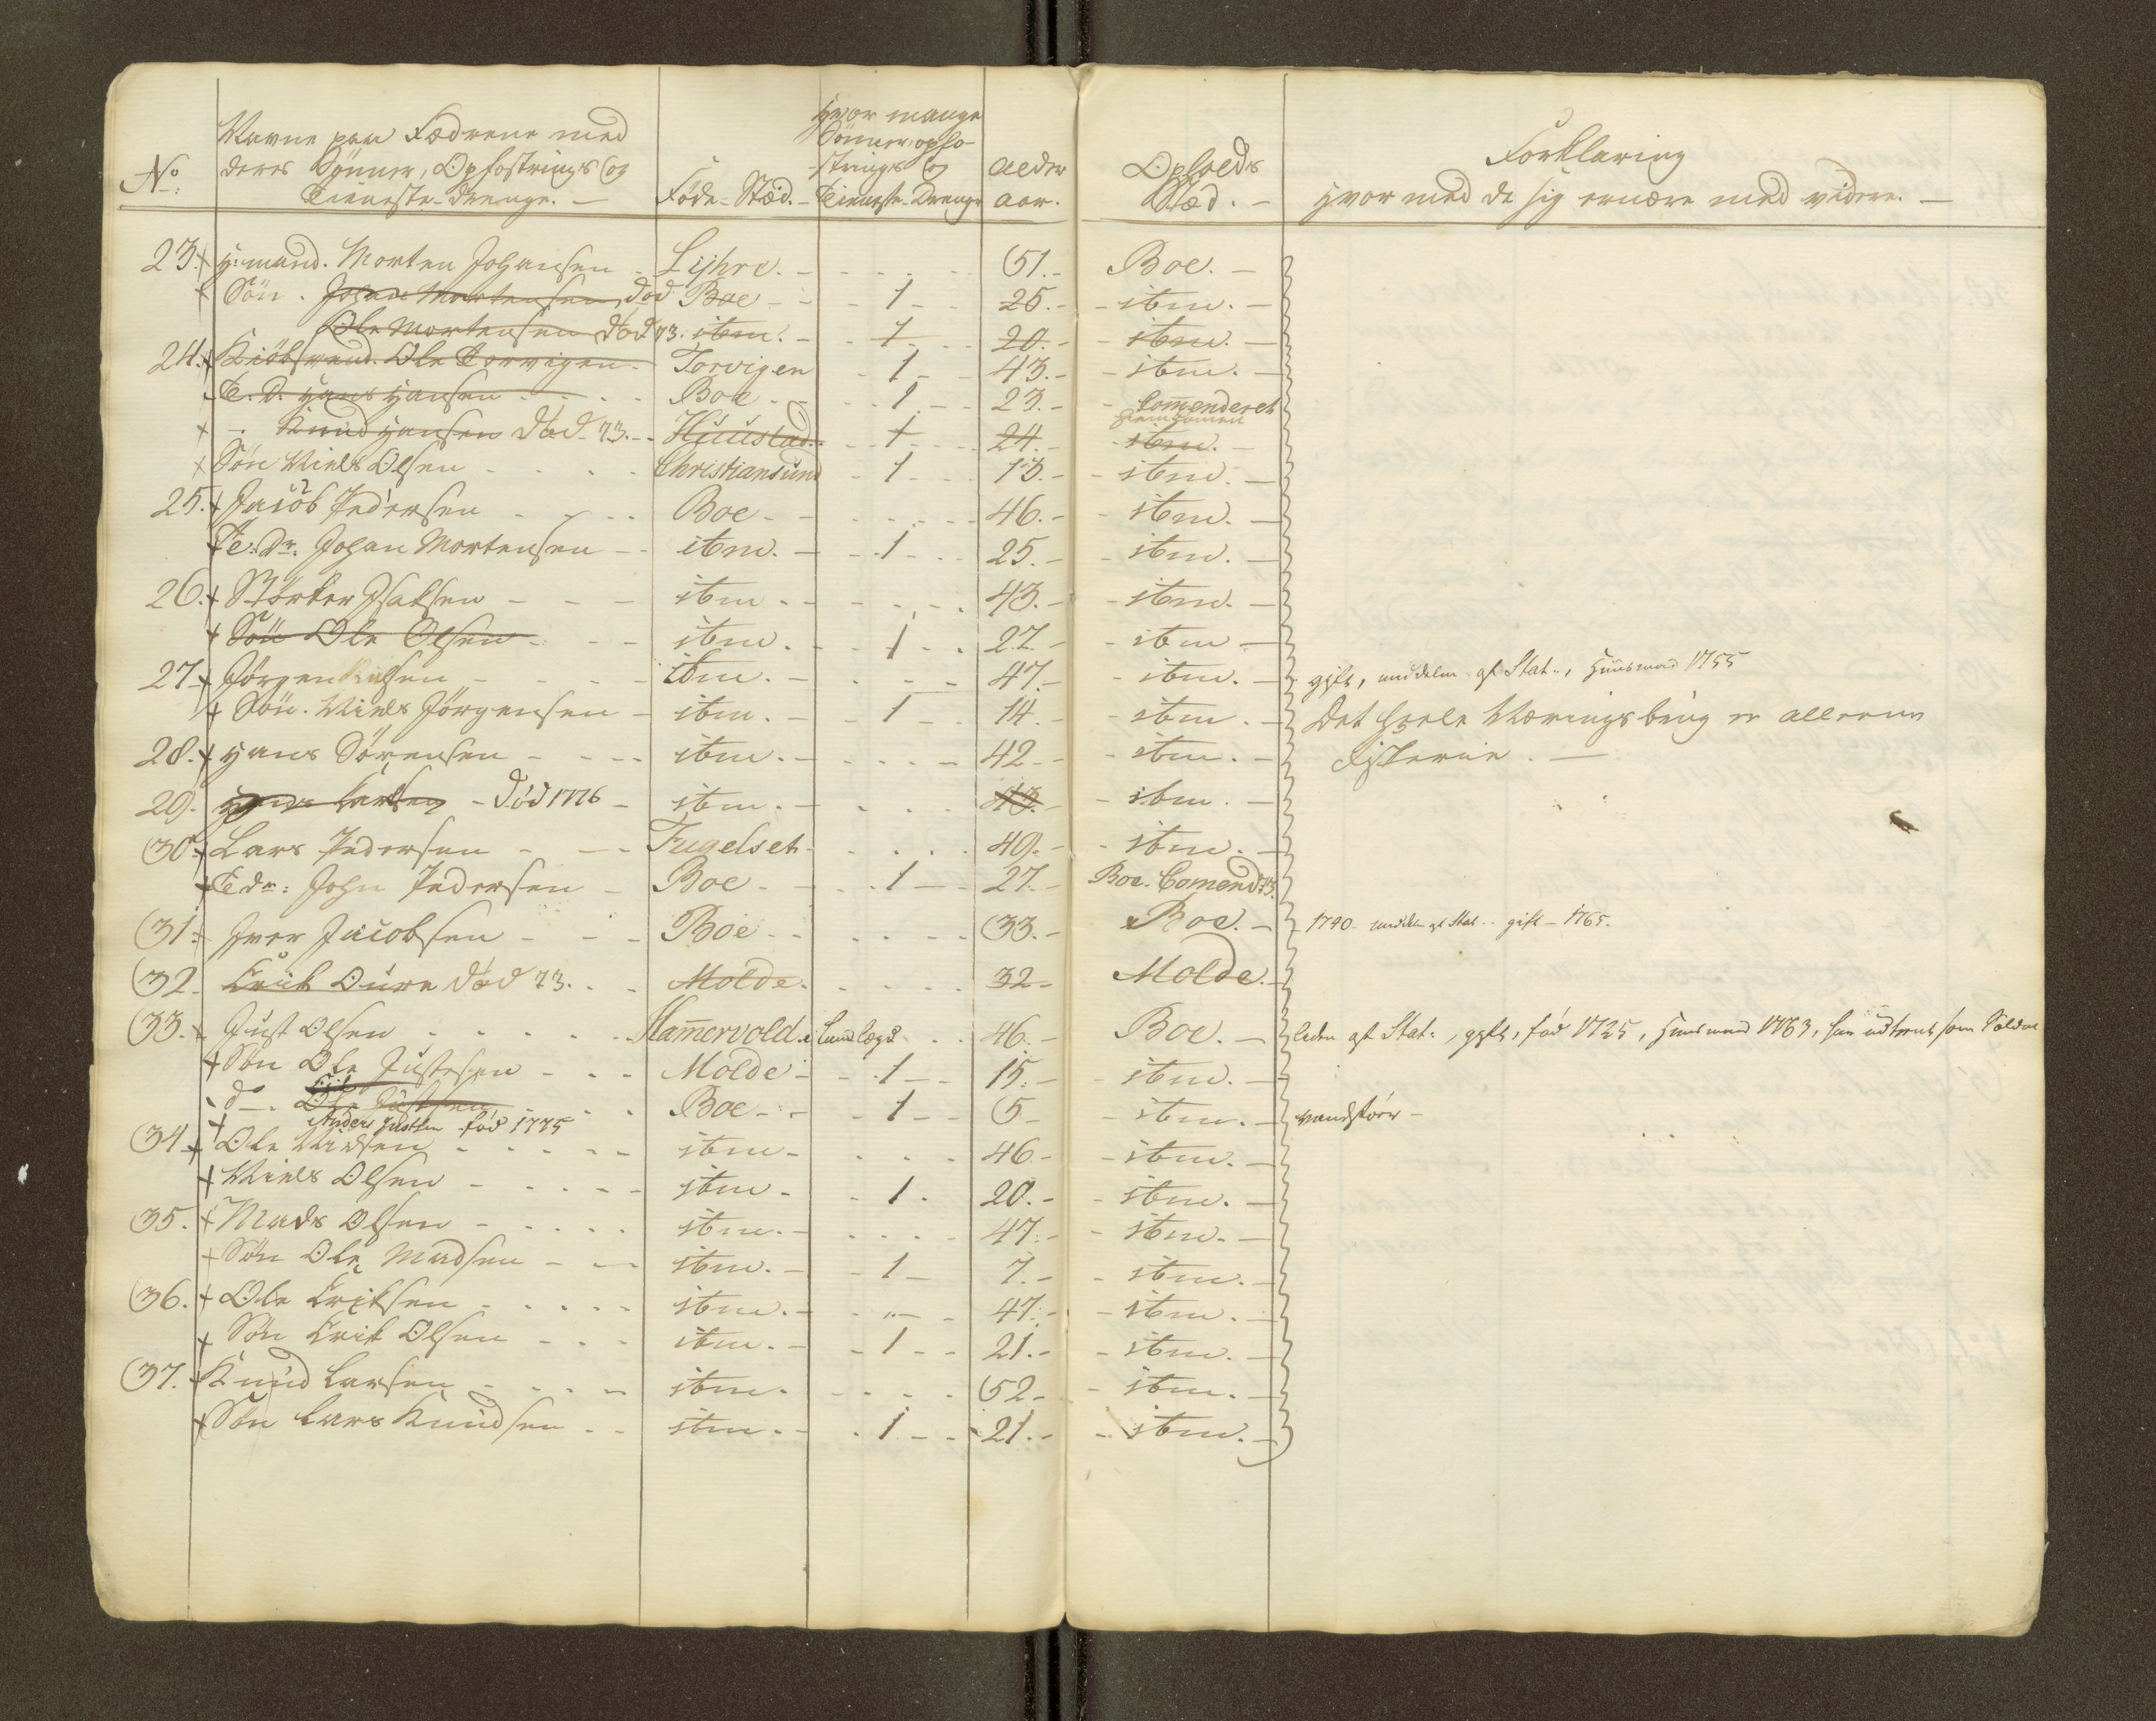 No:
Navne paa Fædrene med
deres Sønner, Opfostrings og
Tieneste-Drenge. —
Føde-Stæd. -
Hvor mange
Sønner, opfo-
strings og
Tieneste-Drenge
Alder
aar.
Opholds
Stæd. -
Forklaring
hvor med de sig ernære med videre. —
23. + H:mand. Morten Johansen - Lijhre. - 51. - Boe. -
+ Søn. Johan Mortensen, død Boe - 1 - 25. - itm. -
Ole Mortensen død 73. itm. - 1 - 20. - itm. -
24. + Kiøbsvend. Ole Torvigen. Torvigen - 1 - 43. - itm. -
T. D. Hans Hansen Boe. - 1 - 23. - Comenderet
hiemkomen
+ - Knud Hansen død 73. - Huustad. - 1 - 24. - itm. -
+ Søn Niels Olsen - Christiansund - 1 - 13. - itm. -
25. + Jacob Pedersen - Boe - 46. - itm. -
Te: Dr: Johan Mortensen - itm. - 1 - 25. - itm. -
26. + Størker Isaksen - itm. - 43. - itm. -
+ Søn Ole Olsen - itm. - 1 - 22. - itm -
27. + Jørgen Nilsen - itm. - 47. - itm. - gift, Huusmand 1755
+ Søn. Niels Jørgensen - itm. - 1 - 14. - itm. - Det heele Næringsbrug er alleene
28. + Hans Sørensen - itm. - 42 - itm. - Fiskerie. —
29. Larsen - død 1776 - itm. - 43. - itm. -
30. + Lars Pedersen - Fugelset - 49. - itm. -
+ T Dr: John Pedersen - Boe - 1 - 27. - Boe. Comend: 73.
31. + Iver Jacobsen - Boe - 33. - Boe. - 1740 gift - 1765.
32. Erik Oure død 73. - Molde. - 32 - Molde. -
33. + Just Olsen - Hamervold. i Lande lægd - 46. - Boe. - liden af Stat:, gift, fød 1725, Huusmand 1763, har udtient som Soldat
+ Søn Ole Justesen - Molde - 1 - 15. - itm. -
do. Ole Justsen - Boe - 1 - 5 - itm. - vandføør -
+ Anders Justsen fød 1775
34. + Ole Nielsen - itm - 46. - itm. -
+ Niels Olsen - itm - 1. 20. - itm. -
35. + Mads Olsen - itm. - 47. - itm. -
+ Søn Ole Madsen - itm. - 1 - 7. - itm. -
36. + Ole Eriksen - itm. - 47. - itm. -
+ Søn Erik Olsen - itm. - 1 - 21. - itm. -
37. + Knud Larsen - itm. - 52 - itm. -
+ Søn Lars Knudsen - itm. - 1 - 21. - itm. -